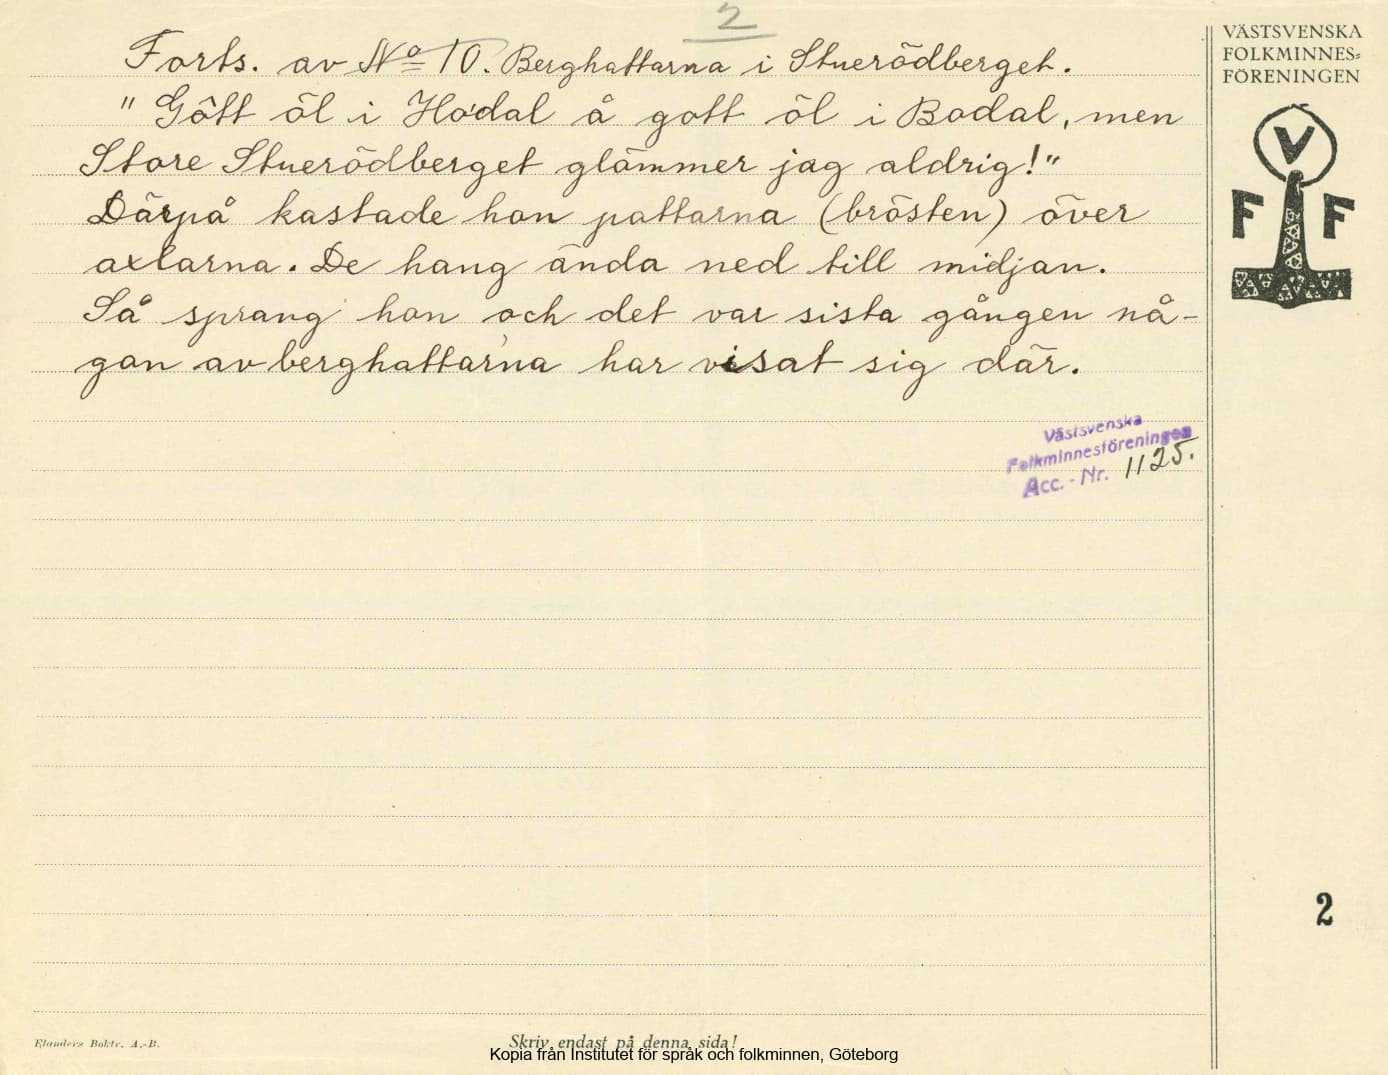 2
Forts. av No 10. Berghattarna i Stuerödberget.
"Gôtt öl i Hôdal å gott öl i Bodal, men
Store Stuerödberget glömmer jag aldrig!"
Därpå kastade hon pattarna (brösten) över
axlarna. De hang ända ned till midjan.
Så sprang hon och det var sista gången nå-
gon av berghattarna har visat sig där.
Västsvenska
Folkminnesföreningen
Acc.-Nr. 1125.
VÄSTSVENSKA
FOLKMINNES=
FÖRENINGEN
V
F F
2
Elanders Boktr. A.-B.
Skriv endast på denna sida!
Kopia från Institutet för språk och folkminnen, Göteborg